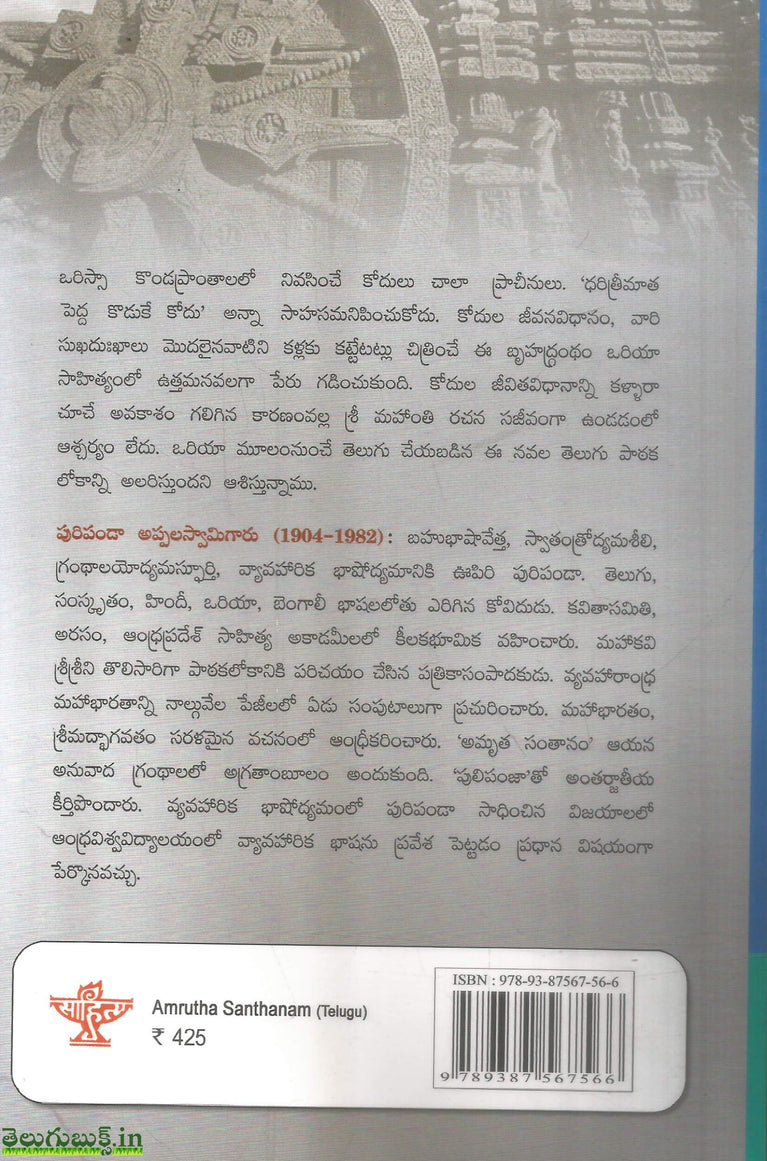 ఒరిస్సా కొండప్రాంతాలలో నివసించే కోదులు చాలా ప్రాచీనులు. ‘ధరిత్రీమాత
పెద్ద కొడుకే కోదు’ అన్నా సాహసమనిపించుకోదు. కోదుల జీవనవిధానం, వారి
సుఖదుఃఖాలు మొదలైనవాటిని కళ్లకు కట్టేటట్లు చిత్రించే ఈ బృహద్గ్రంథం ఒరియా
సాహిత్యంలో ఉత్తమనవలగా పేరు గడించుకుంది. కోదుల జీవితవిధానాన్ని కళ్ళారా
చూచే అవకాశం గలిగిన కారణంవల్ల శ్రీ మహాంతి రచన సజీవంగా ఉండడంలో
ఆశ్చర్యం లేదు. ఒరియా మూలంనుంచే తెలుగు చేయబడిన ఈ నవల తెలుగు పాఠక
లోకాన్ని అలరిస్తుందని ఆశిస్తున్నాము.
పురిపండా అప్పలస్వామిగారు (1904-1982) : బహుభాషావేత్త, స్వాతంత్రోద్యమశీలి,
గ్రంథాలయోద్యమస్ఫూర్తి, వ్యావహారిక భాషోద్యమానికి ఊపిరి పురిపండా. తెలుగు,
సంస్కృతం, హిందీ, ఒరియా, బెంగాలీ భాషలలోతు ఎరిగిన కోవిదుడు. కవితాసమితి,
అరసం, ఆంధ్రప్రదేశ్ సాహిత్య అకాడమీలలో కీలకభూమిక వహించారు. మహాకవి
శ్రీశ్రీని తొలిసారిగా పాఠకలోకానికి పరిచయం చేసిన పత్రికాసంపాదకుడు. వ్యవహారాంధ్ర
మహాభారతాన్ని నాల్గువేల పేజీలలో ఏడు సంపుటాలుగా ప్రచురించారు. మహాభారతం,
శ్రీమద్భాగవతం సరళమైన వచనంలో ఆంధ్రీకరించారు. ‘అమృత సంతానం’ ఆయన
అనువాద గ్రంథాలలో అగ్రతాంబూలం అందుకుంది. ‘పులిపంజా’తో అంతర్జాతీయ
కీర్తిపొందారు. వ్యవహారిక భాషోద్యమంలో పురిపండా సాధించిన విజయాలలో
ఆంధ్రవిశ్వవిద్యాలయంలో వ్యావహారిక భాషను ప్రవేశ పెట్టడం ప్రధాన విషయంగా
పేర్కొనవచ్చు.
साहित्य
Amrutha Santhanam (Telugu)
₹ 425
ISBN : 978-93-87567-56-6
9 789387 567566
తెలుగుబుక్స్.in